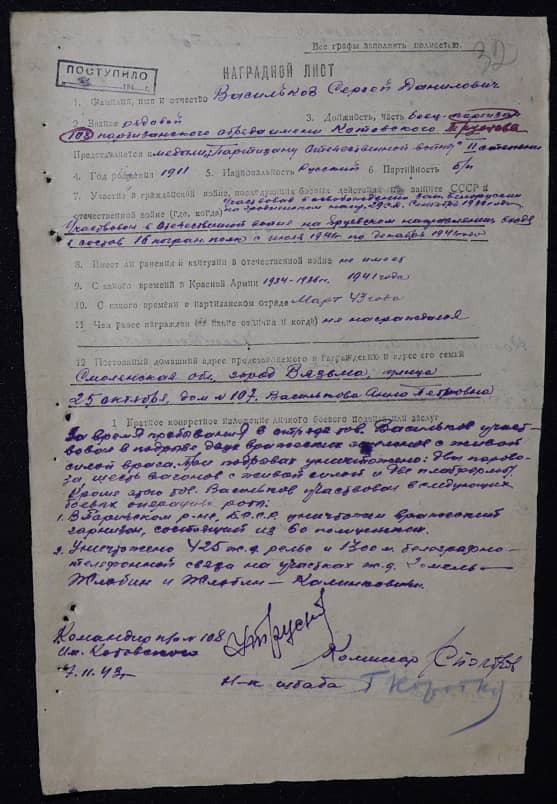 Все графы заполнять полностью.
32
ПОСТУПИЛО
194 г.
НАГРАДНОЙ ЛИСТ
1. Фамилия, имя и отчество Васильков Сергей Данилович
2. Звание рядовой 3. Должность, часть боец-партизан
108 партизанского отряда имени Котовского
Представляется к медали „Партизану Отечественной войны" II степени
4. Год рождения 1911 5. Национальность Русский 6. Партийность б/п
7. Участие в гражданской войне, последующих боевых действиях по защите СССР и
отечественной войне (где, когда)
Участвовал в Отечественной войне на
в составе 16 погран. полк с июля 1941 по декабрь 1941
8. Имеет ли ранения и контузии в отечественной войне не имеет
9. С какого времени в Красной Армии 1934-1936 г. 1941 года
10. С какого времени в партизанском отряде Март 43 года
11. Чем ранее награжден (какие отличия и когда) не награждался
12. Постоянный домашний адрес представляемого к награждению и адрес его семьи
Смоленская обл, город Вязьма, улица
25 октября, дом № 107. Василькова Анна Петровна
1. Краткое конкретное изложение личного боевого подвига или заслуг
За время пребывания в отряде тов. Васильков участ-
вовал в подрыве двух вражеских эшелонов с живой
силой врага. При подрывах уничтожено: два парово-
за, шесть вагонов с живой силой и две платформы.
Кроме этого тов. Васильков участвовал в следующих
боевых операциях рота:
1. В р-не, Б.С.С.Р. уничтожен вражеский
гарнизон, состоящий из 60 полицейских.
2. Уничтожено 425 ж.д. рельс и 1300 м. телеграфно-
телефонной связи на участках ж.д. Гомель-
Жлобин и Жлобин - Калинковичи.
Командир п/о № 108
Им. Котовского
7.11.43 г.
Комиссар
Н-к штаба